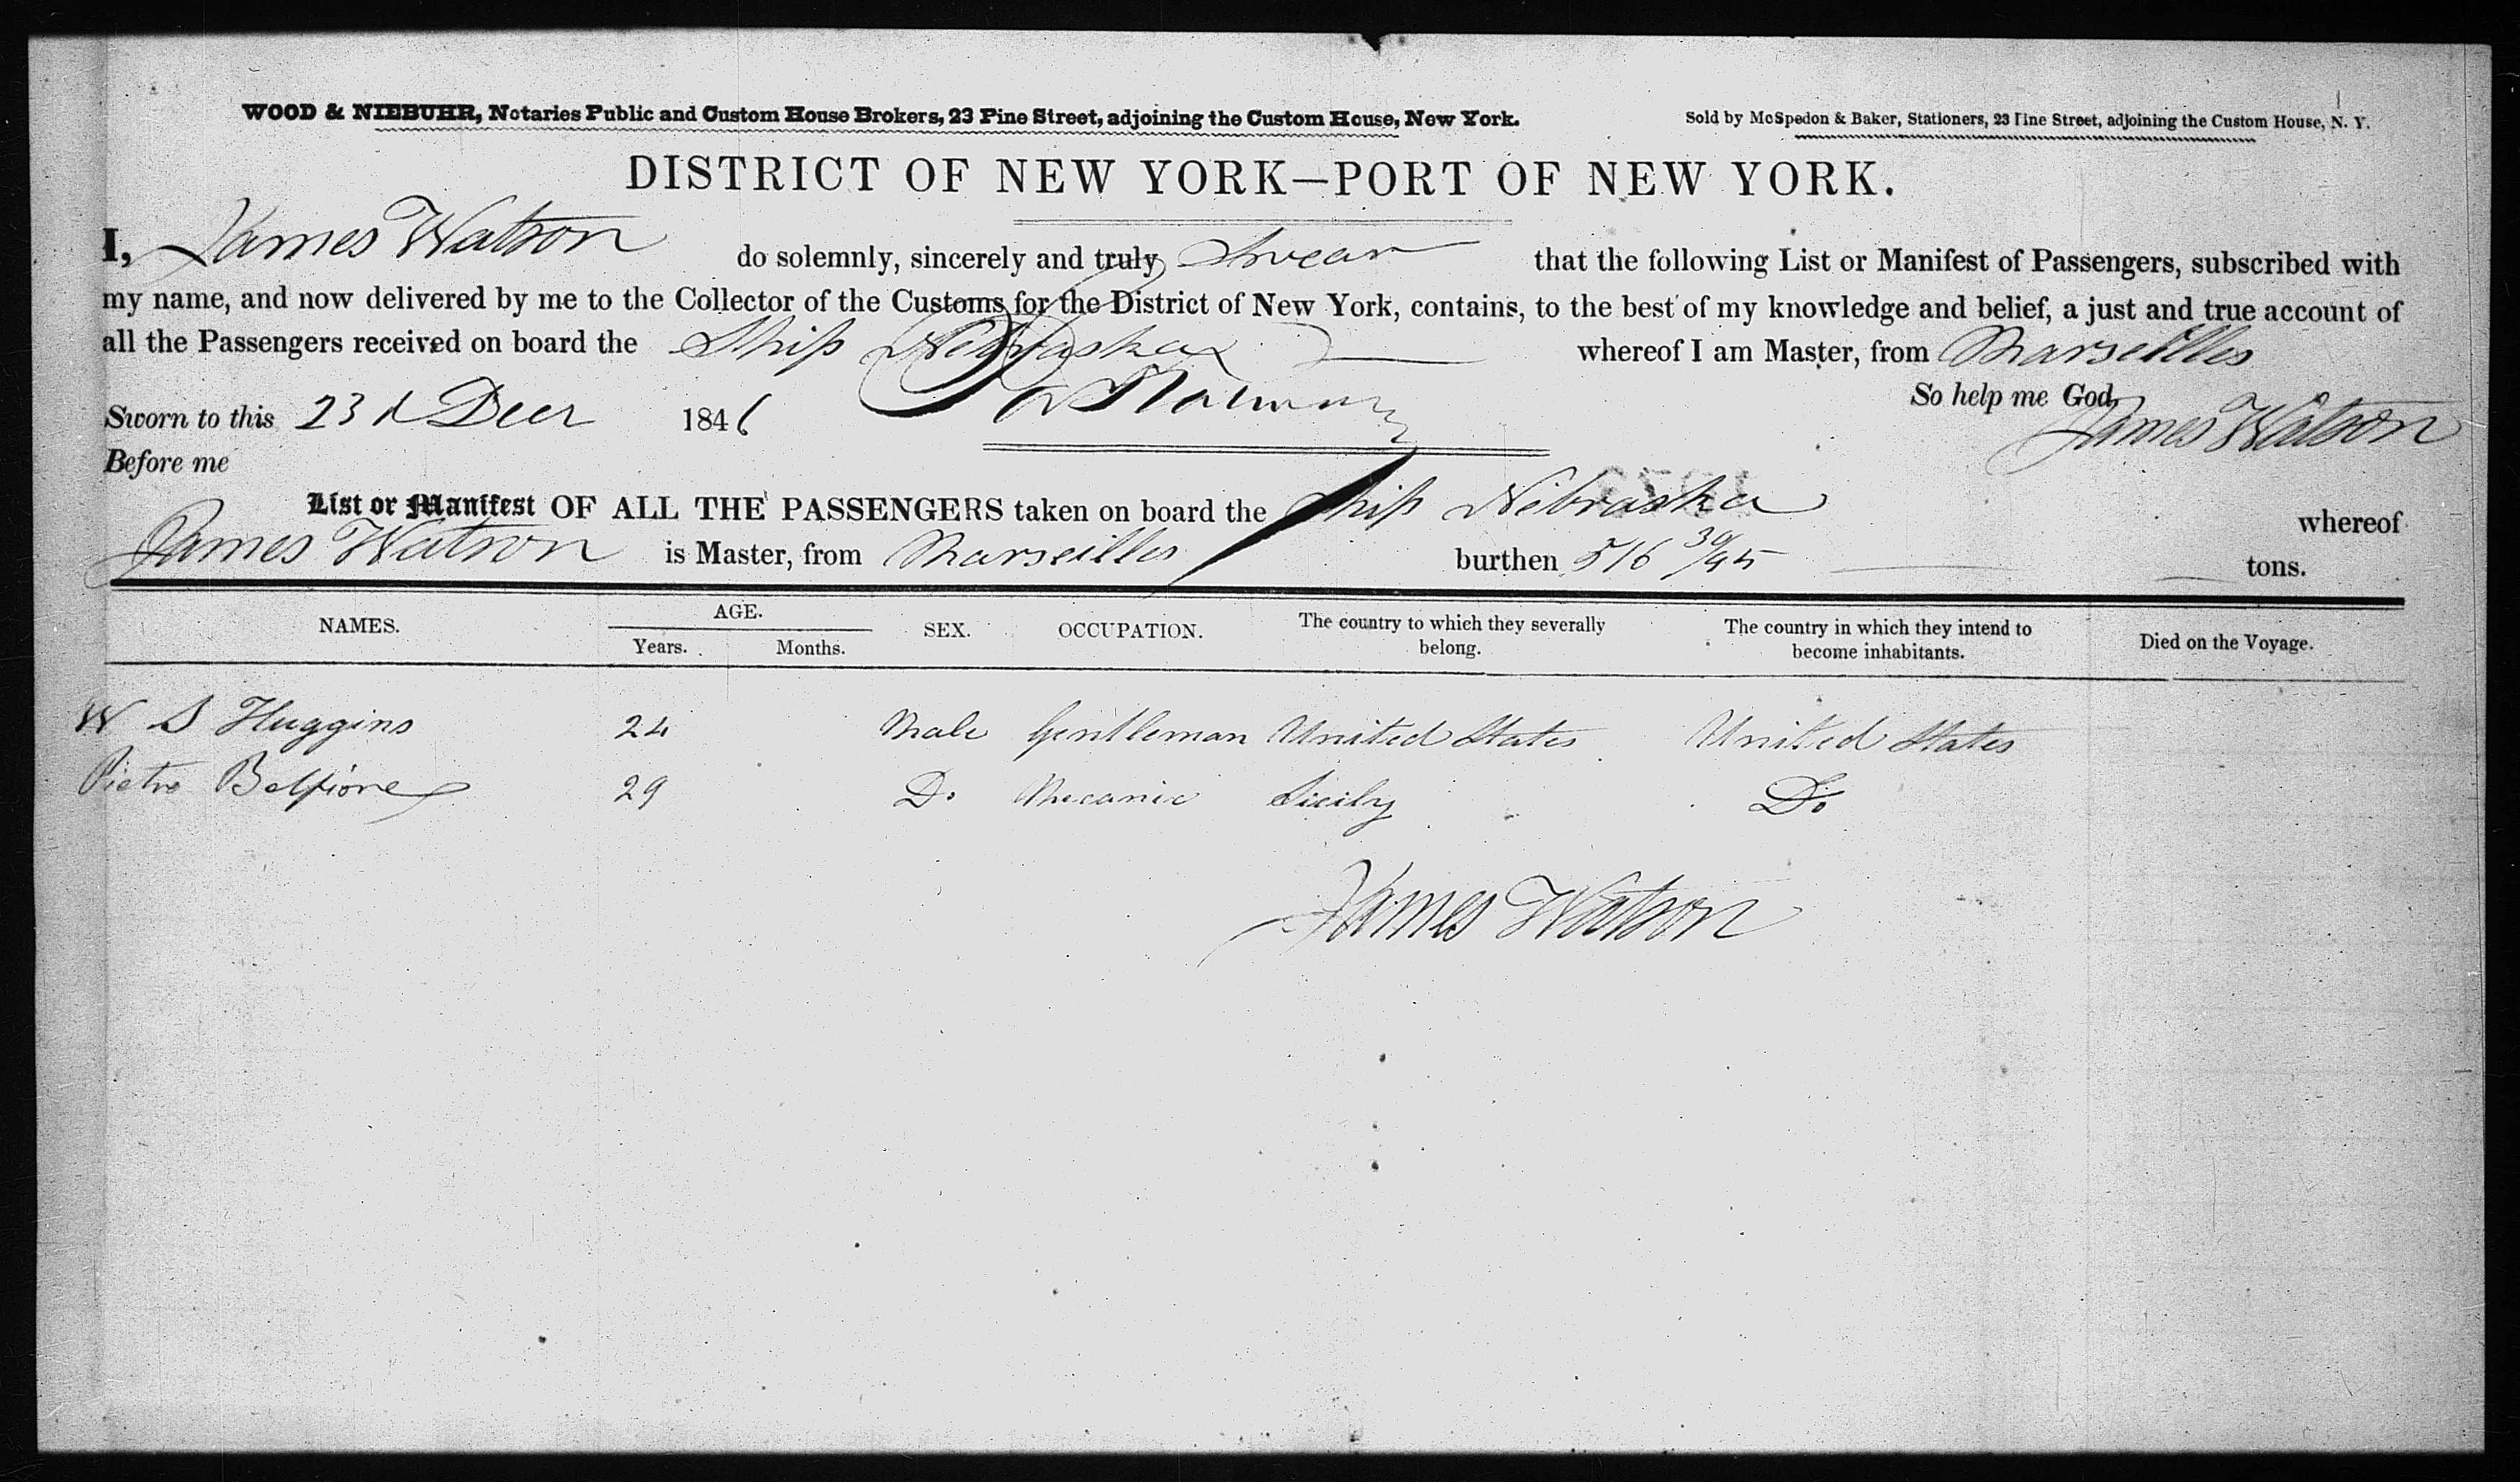 WOOD & NIEBUHR, Notaries Public and Custom House Brokers, 23 Pine Street, adjoining the Custom House, New York.
Sold by McSpedon & Baker, Stationers, 23 Pine Street, adjoining the Custom House, N. Y.
DISTRICT OF NEW YORK—PORT OF NEW YORK.
I, James Watson do solemnly, sincerely and truly Swear that the following List or Manifest of Passengers, subscribed with
my name, and now delivered by me to the Collector of the Customs for the District of New York, contains, to the best of my knowledge and belief, a just and true account of
all the Passengers received on board the Ship Nebraska whereof I am Master, from Marseilles
So help me God,
Sworn to this 23d Decr 1846 James Watson
Before me
List or Manifest OF ALL THE PASSENGERS taken on board the Ship Nebraska whereof
James Watson is Master, from Marseilles burthen 516 30/95 tons.
NAMES. AGE. Years. Months. SEX. OCCUPATION. The country to which they severally belong. The country in which they intend to become inhabitants. Died on the Voyage.
W S Huggins 24 Male Gentleman United States United States
Pietro Belfiore 29 Do Mecanic Sicily Do
James Watson